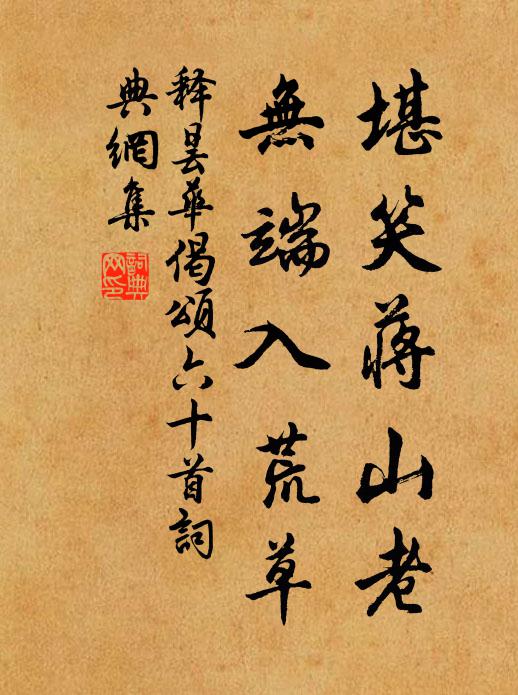 堪笑蔣山老
無端入荒草
释昙華偈頌六十首詞
典網集
詞典
网印